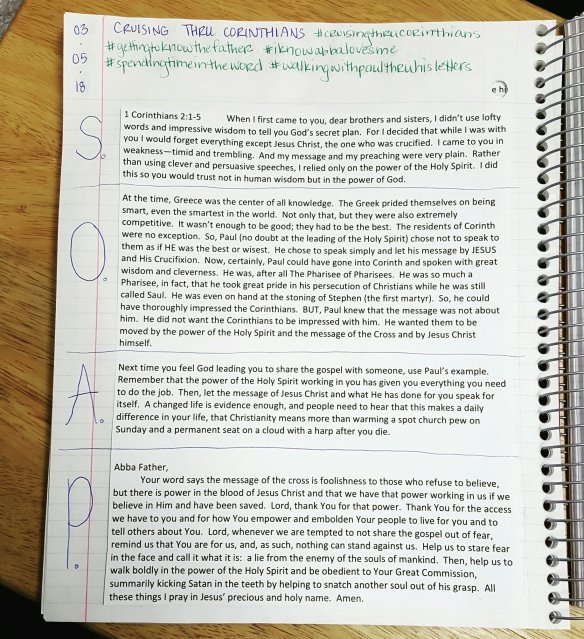 03
.
05
.
18
CRUISING THRU CORINTHIANS #cruisingthrucorinthians
#gettingtoknowthefather #iknowabbalovesme
#spendingtimeintheword #walkingwithpaulthruhisletters
S.
1 Corinthians 2:1-5 When I first came to you, dear brothers and sisters, I didn't use lofty
words and impressive wisdom to tell you God's secret plan. For I decided that while I was with
you I would forget everything except Jesus Christ, the one who was crucified. I came to you in
weakness—timid and trembling. And my message and my preaching were very plain. Rather
than using clever and persuasive speeches, I relied only on the power of the Holy Spirit. I did
this so you would trust not in human wisdom but in the power of God.
O.
At the time, Greece was the center of all knowledge. The Greek prided themselves on being
smart, even the smartest in the world. Not only that, but they were also extremely
competitive. It wasn't enough to be good; they had to be the best. The residents of Corinth
were no exception. So, Paul (no doubt at the leading of the Holy Spirit) chose not to speak to
them as if HE was the best or wisest. He chose to speak simply and let his message by JESUS
and His Crucifixion. Now, certainly, Paul could have gone into Corinth and spoken with great
wisdom and cleverness. He was, after all The Pharisee of Pharisees. He was so much a
Pharisee, in fact, that he took great pride in his persecution of Christians while he was still
called Saul. He was even on hand at the stoning of Stephen (the first martyr). So, he could
have thoroughly impressed the Corinthians. BUT, Paul knew that the message was not about
him. He did not want the Corinthians to be impressed with him. He wanted them to be
moved by the power of the Holy Spirit and the message of the Cross and by Jesus Christ
himself.
A.
Next time you feel God leading you to share the gospel with someone, use Paul's example.
Remember that the power of the Holy Spirit working in you has given you everything you need
to do the job. Then, let the message of Jesus Christ and what He has done for you speak for
itself. A changed life is evidence enough, and people need to hear that this makes a daily
difference in your life, that Christianity means more than warming a spot church pew on
Sunday and a permanent seat on a cloud with a harp after you die.
P.
Abba Father,
Your word says the message of the cross is foolishness to those who refuse to believe,
but there is power in the blood of Jesus Christ and that we have that power working in us if we
believe in Him and have been saved. Lord, thank You for that power. Thank You for the access
we have to you and for how You empower and embolden Your people to live for you and to
tell others about You. Lord, whenever we are tempted to not share the gospel out of fear,
remind us that You are for us, and, as such, nothing can stand against us. Help us to stare fear
in the face and call it what it is: a lie from the enemy of the souls of mankind. Then, help us to
walk boldly in the power of the Holy Spirit and be obedient to Your Great Commission,
summarily kicking Satan in the teeth by helping to snatch another soul out of his grasp. All
these things I pray in Jesus' precious and holy name. Amen.